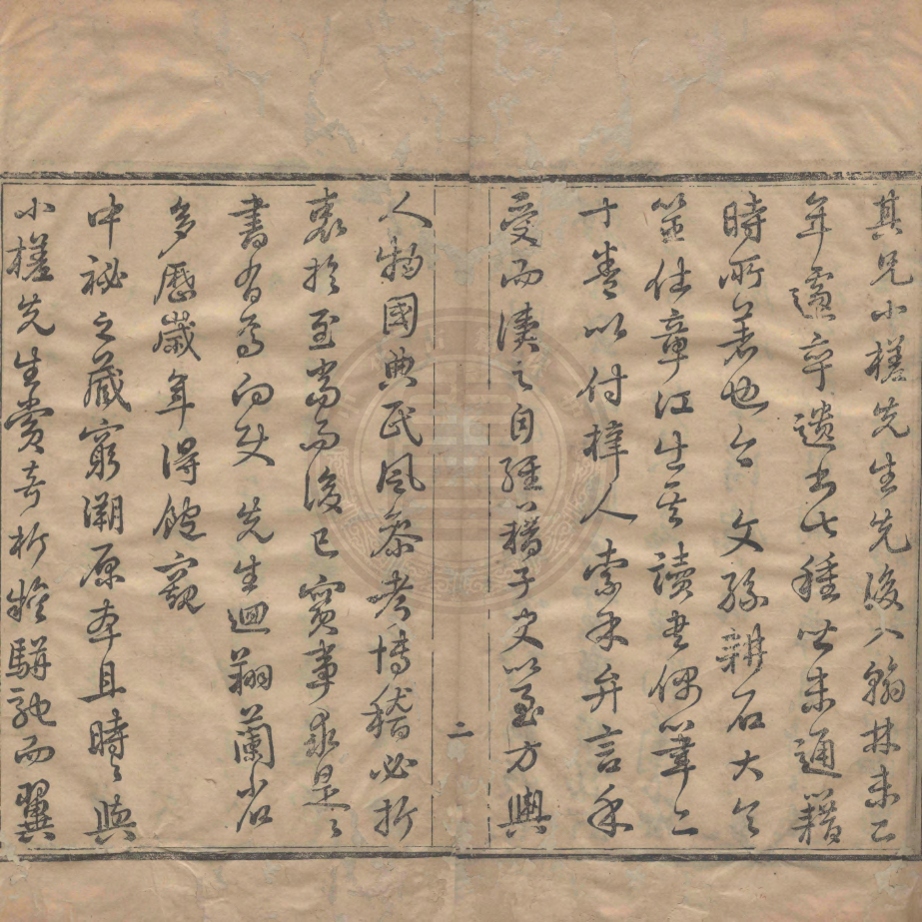 其兄小槎先生先後入翰林未二
年遽卒遺書七種皆未通籍
時所著也今文孫耕石大令
筮仕章江出其讀書偶筆二
十卷以付梓人索予弁言予
受而讀之自經籍子史以至方輿
二
人物國典民風參考博稽必折
衷於至當而後已實事求是之
書有為而發先生迴翔蘭省
多歷歲年得飽窺
中祕之藏窮溯原本且時時與
小槎先生賞奇析疑騁馳而翼